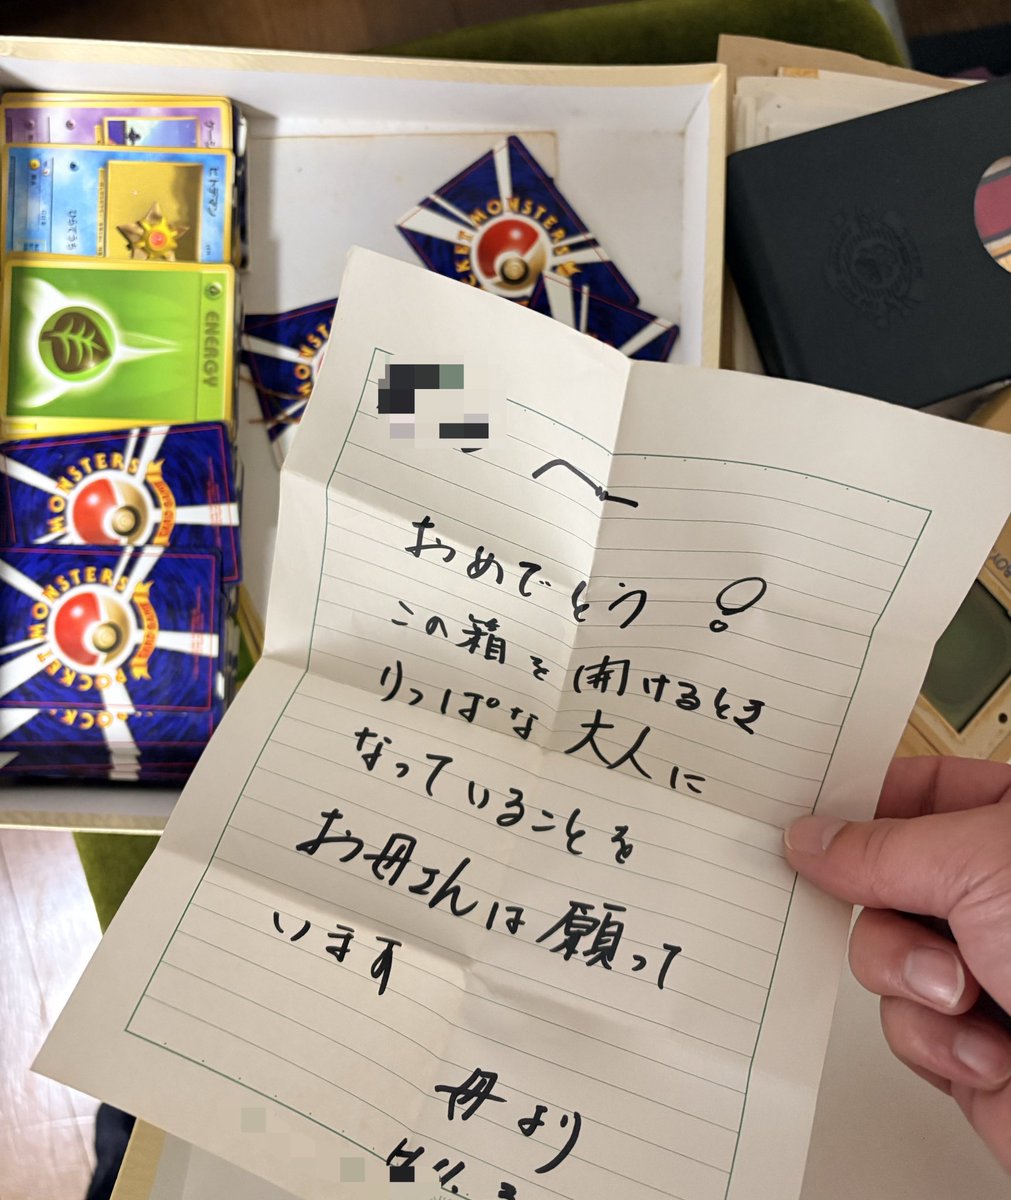 ヒトデマン
ENERGY
POCKET MONSTERS
POCKET MONSTERS
POCKET MONSTERS
へ
おめでとう!
この箱を開けるとき
りっぱな大人に
なっていることを
お母さんは願って
います
母より